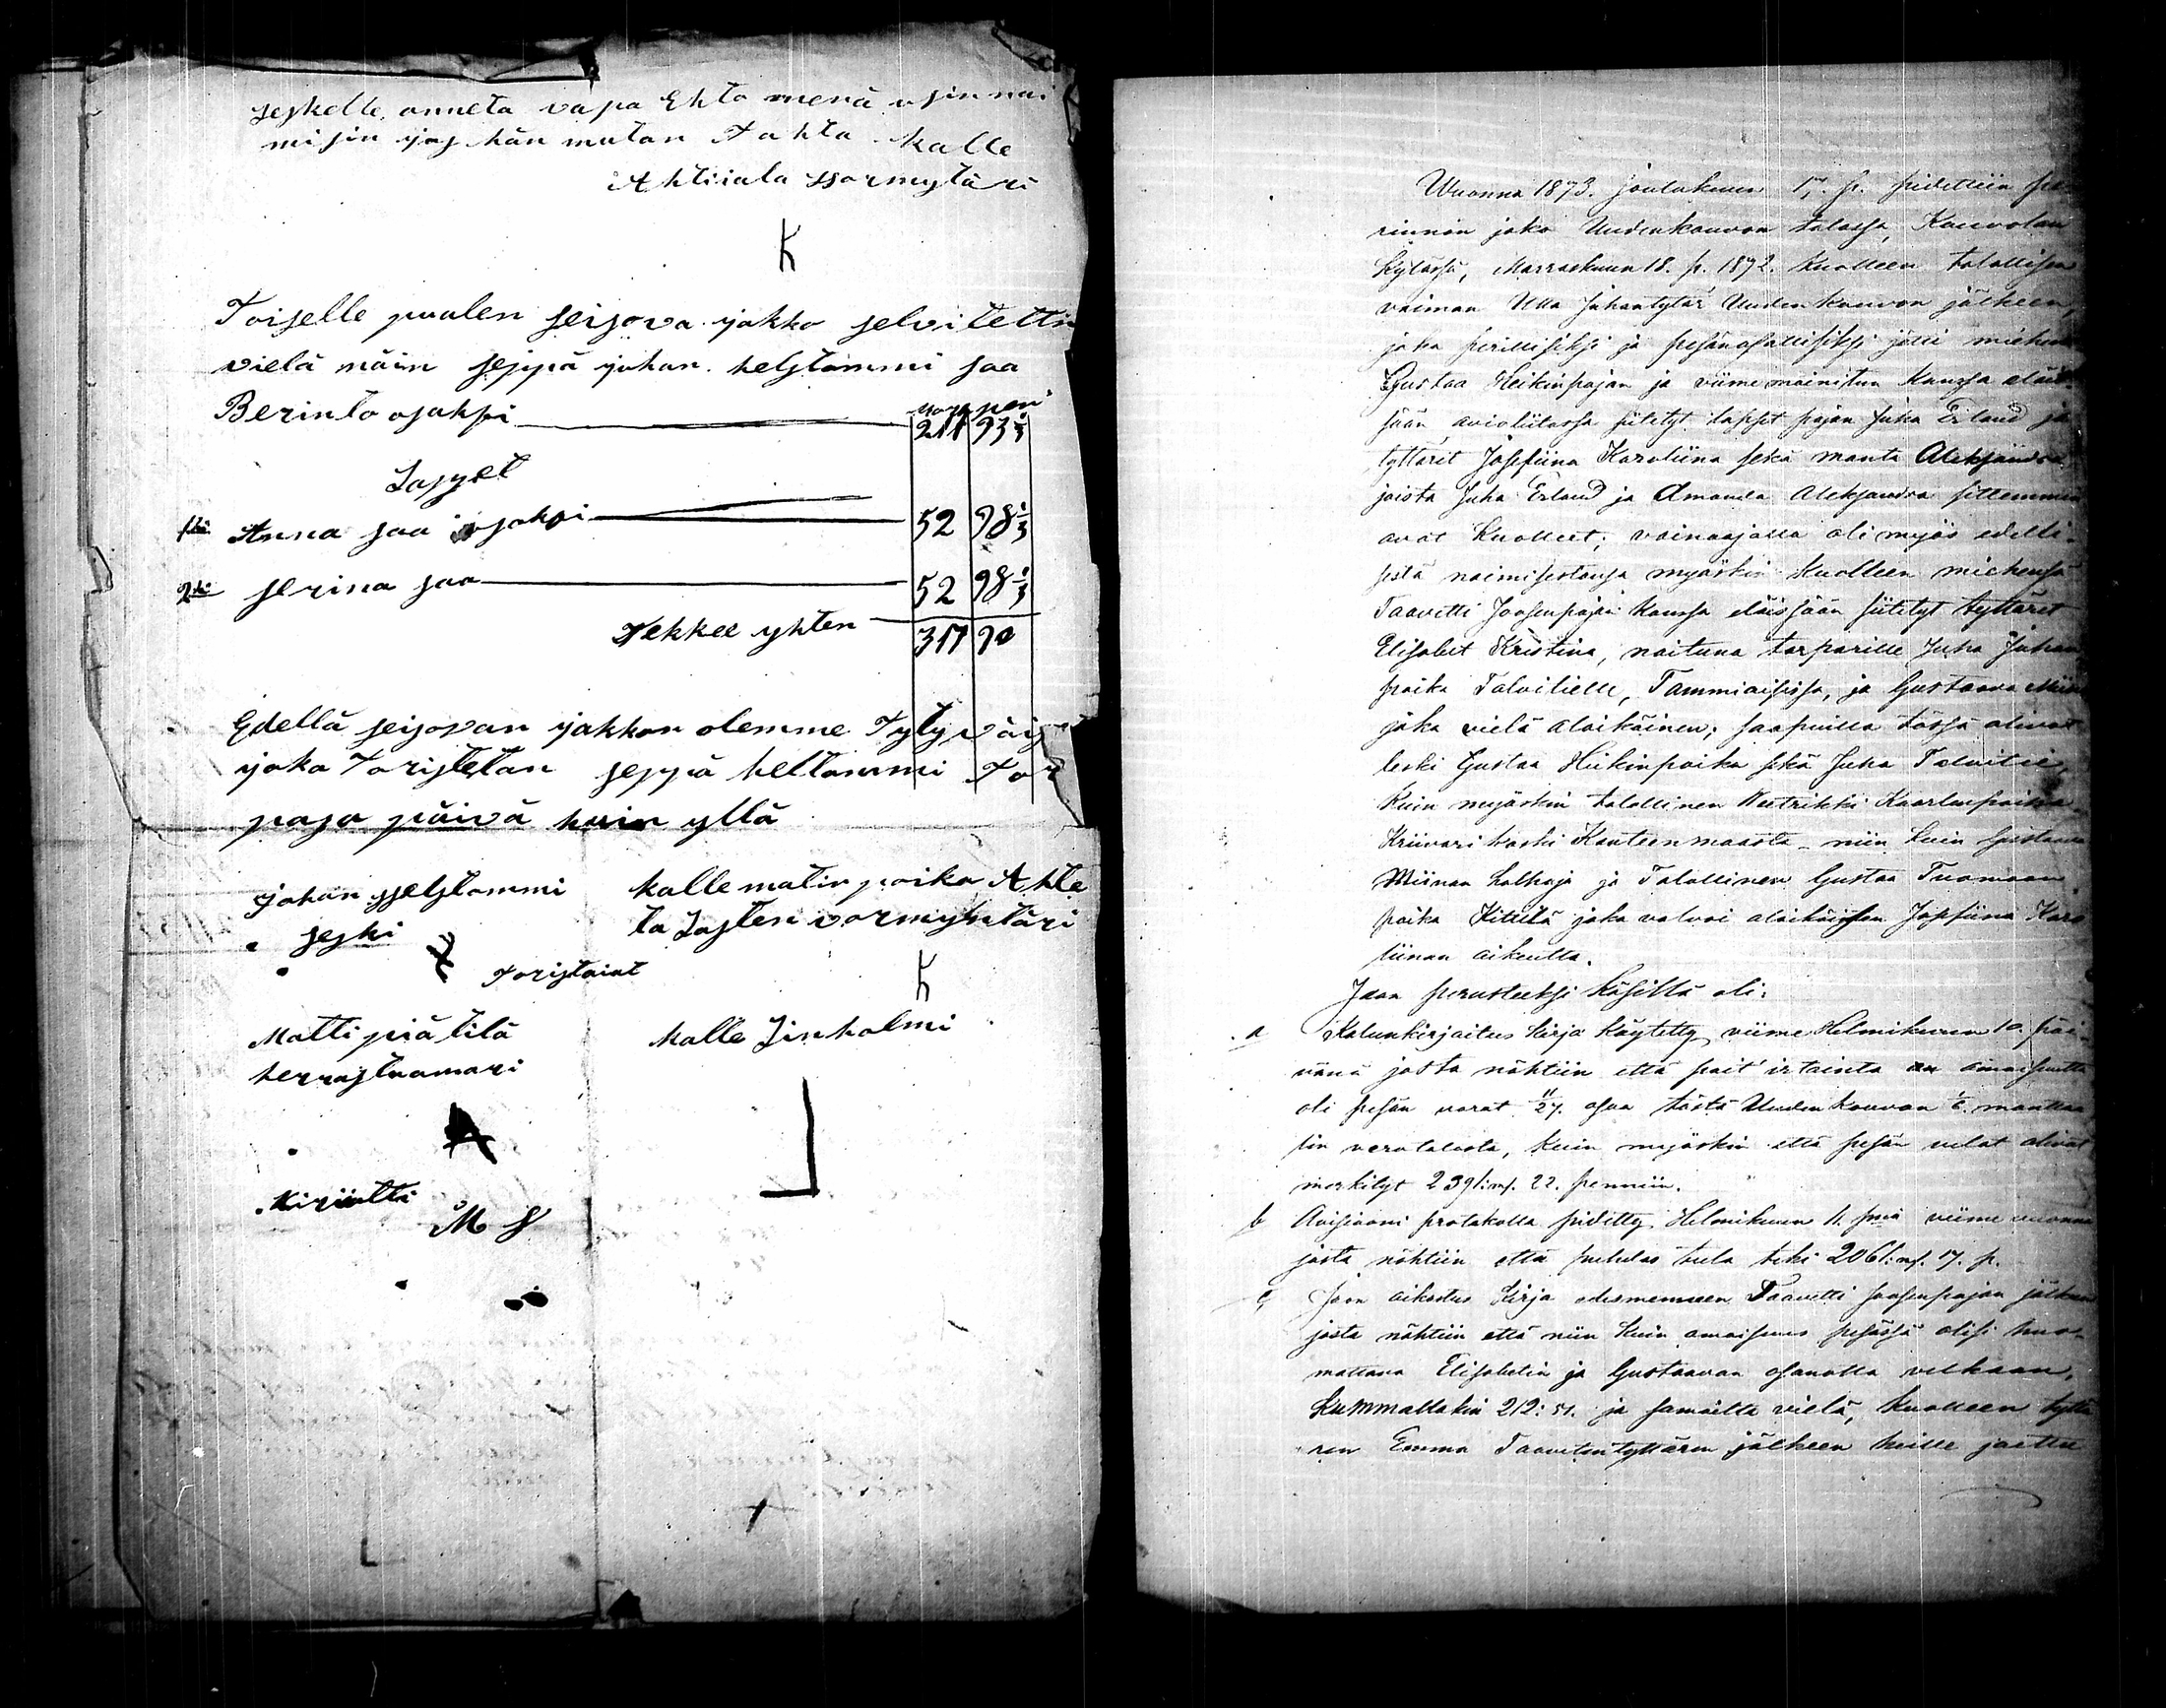 seskelle anneta vapa Ehto menä
misin jos hän mutan Tahto kalle
Ahtiiala
K
Toiselle puolen seisova jakko selvitettin
vielä näin seppä johan helstommi saa
Berinto osaksi 211 93 1/3
Lapset
1ksi Anna saa osaksi 52 98 1/3
2ksi serina saa 52 98 1/3
Tekkee yhten 317 90
Edellä seisovan jakkon olemme
joka Toristetan seppä heltommi
paja päivä kuin yllä
johan helstommi kalle matin poika Ahte
seski la Lasten vormyntäri
K
Toristaiat
Matti piätilä kalle Linholmi
herrastuomari
Kirjutti
M S
Wuonna 1873. joulukuun 17. p. pidettiin pe-
rinnön jako Uudenkouvon talossa, Kouvolan
Kylässä, Marraskuun 18. p. 1872. Kuolleen talollisen
vaimon Ulla Juhantytär Uudenkouvon jälkeen,
joka perillisiksi ja pesänosallisiksi jätti miehen
Gustaa Heikinpojan ja viimemainitun kanssa eläis-
sään avioliitossa siitetyt lapset pojan Juha Erland ja
tyttärit Josefiina Karoliina sekä Manta Aleksandra
joista Juha Erland ja Amanda Aleksandra sittemmin
ovat Kuolleet; vainaajalla oli myös edelli-
sestä naimisestansa myöskin Kuolleen miehensä
Taavetti Joosenpojan kanssa eläissään siitetyt tyttäret
Elisabet Kristina, naituna torparille Juha Juhan
poika Talvitielle, Tammiaisissa, ja Gustaava Miina
joka vielä alaikäinen; saapuilla tässä olivat
leski Gustaa Heikinpoika sekä Juha Talvitie,
Kuin myöskin talollinen Kaarlenpoika
Kanteenmaasta niin kuin Gustaava
Miinan holhoja ja Talollinen Gustaa Tuomaan
poika joka valvoi alaikäisen Josefiina Karo
liinan oikeutta.
Jaon perusteeksi Käsillä oli:
a Kalunkirjoitus Kirja Käytetty viime Helmikuun 10. päi-
vänä josta nähtiin että pait' irtainta omaisuutta
oli pesän varat 11/27. osaa tästä Uudenkouvon manttaa
lin verotalosta, Kuin myöskin että pesän velat olivat
merkityt 2391:mf. 22. penniin.
b protokolla pidetty Helmikuun 11. pnä viime vuonna
josta nähtiin että puhdas tulo teki 2061:mf. 17. p.
c Jaon oikeutus Kirja edesmenneen Taavetti Joosenpojan jälkeen
josta nähtiin että niin Kuin omaisuus pesässä olisi huo-
mattava Elisabetin ja Gustaavan osanotta velkaan,
Kummallakin 212: 51. ja samoilla vielä, Kuolleen tyttä
ren Emma Taavetintyttären jälkeen heille jaettu